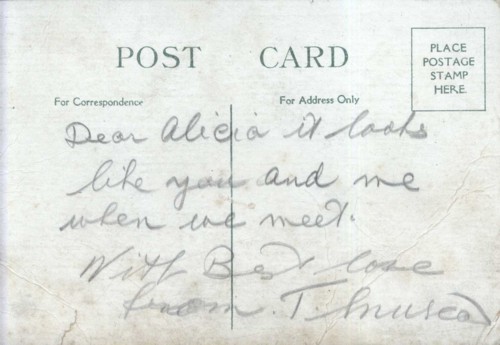 POST CARD
PLACE
POSTAGE
STAMP
HERE.
For Correspondence
For Address Only
Dear Alicia it looks
like you and me
when we meet.
With Best love
from. T.